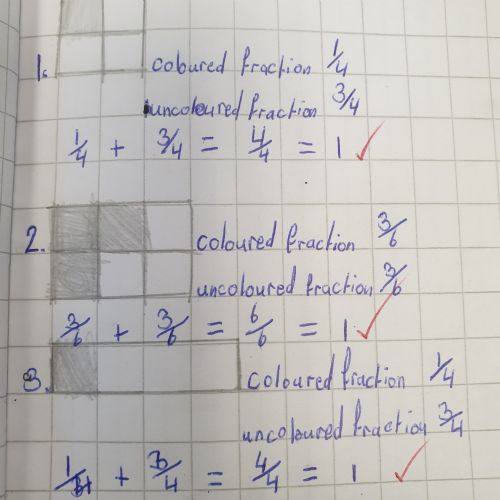 1. coloured fraction 1/4
uncoloured fraction 3/4
1/4 + 3/4 = 4/4 = 1
2. coloured fraction 3/6
uncoloured fraction 3/6
3/6 + 3/6 = 6/6 = 1
3. coloured fraction 1/4
uncoloured fraction 3/4
1/4 + 3/4 = 4/4 = 1